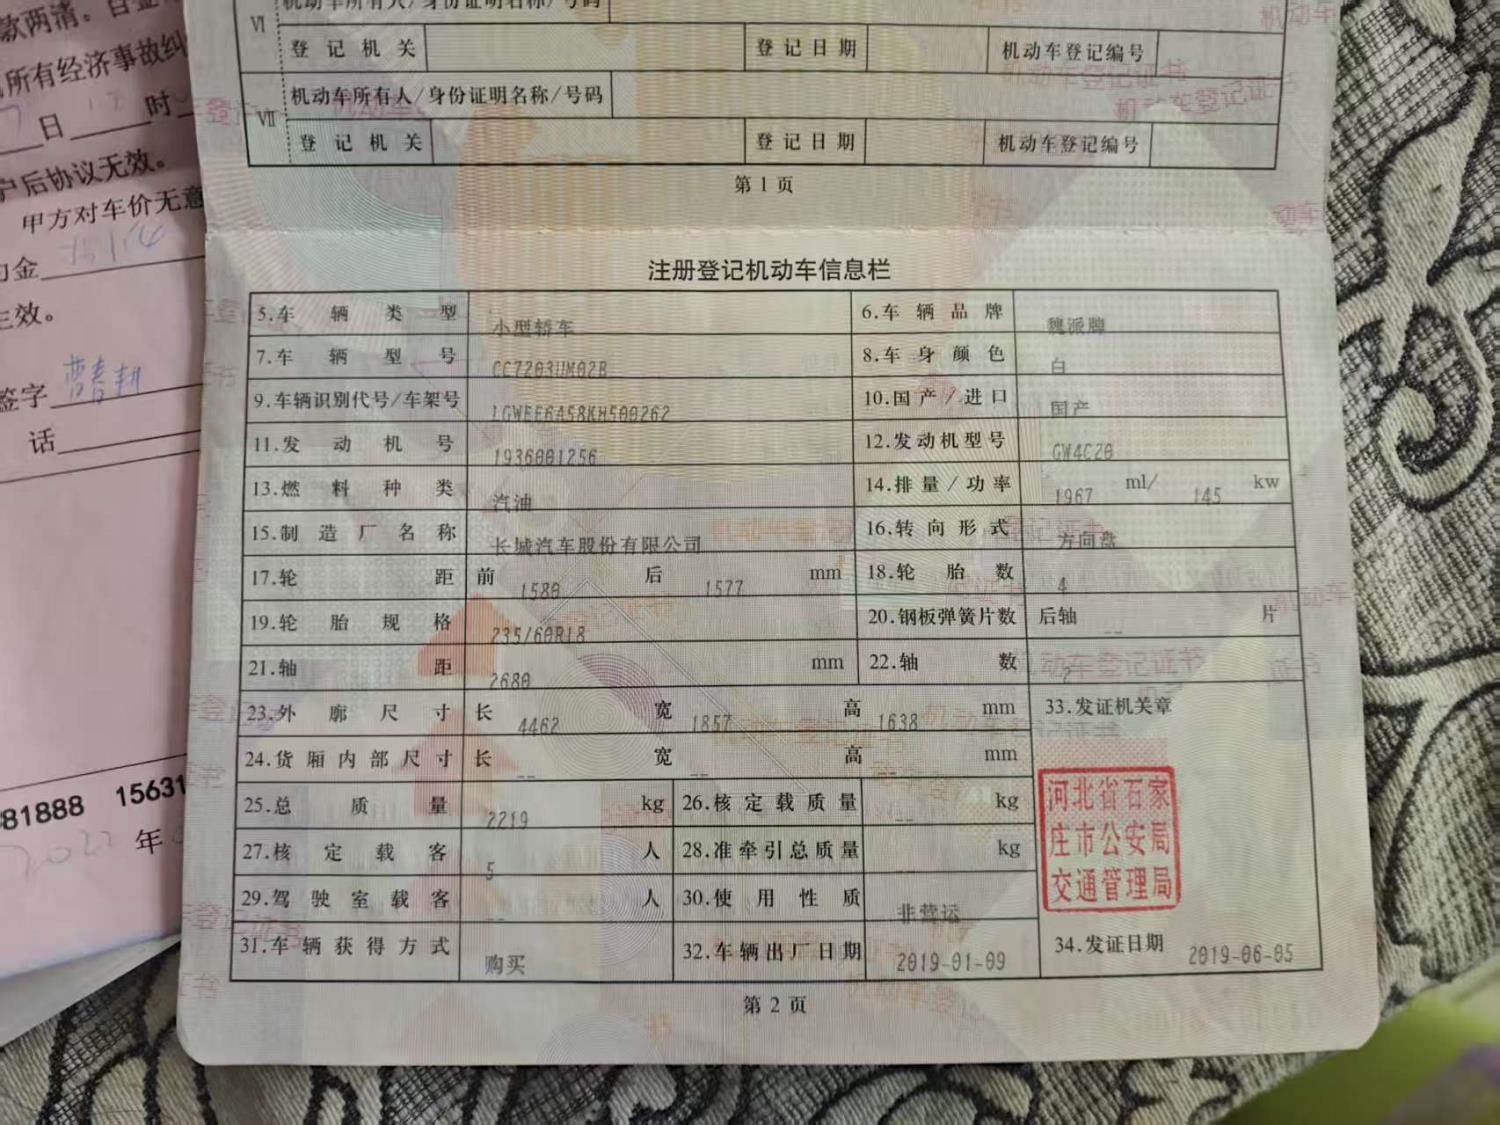 款两清。
所有经济事故纠
日 时
户后协议无效。
甲方对车价无意
金
生效。
签字 曹春耕
话
81888 15631
2022 年
Ⅵ 机动车所有人/身份证明名称/号码
登记机关 登记日期 机动车登记编号
Ⅶ 机动车所有人/身份证明名称/号码
登记机关 登记日期 机动车登记编号
第 1 页
注册登记机动车信息栏
5.车辆类型 小型轿车 6.车辆品牌 魏派牌
7.车辆型号 CC7203UM02B 8.车身颜色 白
9.车辆识别代号/车架号 LGWEF6A58KH500262 10.国产/进口 国产
11.发动机号 1936001256 12.发动机型号 GW4C20
13.燃料种类 汽油 14.排量/功率 1967 ml/ 145 kw
15.制造厂名称 长城汽车股份有限公司 16.转向形式 方向盘
17.轮距 前 1580 后 1577 mm 18.轮胎数 4
19.轮胎规格 235/60R18 20.钢板弹簧片数 后轴 -- 片
21.轴距 2680 mm 22.轴数 2
23.外廓尺寸 长 4462 宽 1857 高 1638 mm 33.发证机关章
24.货厢内部尺寸 长 -- 宽 -- 高 -- mm
25.总质量 2219 kg 26.核定载质量 -- kg
27.核定载客 5 人 28.准牵引总质量 -- kg
29.驾驶室载客 -- 人 30.使用性质 非营运
31.车辆获得方式 购买 32.车辆出厂日期 2019-01-09 34.发证日期 2019-06-05
河北省石家
庄市公安局
交通管理局
第 2 页